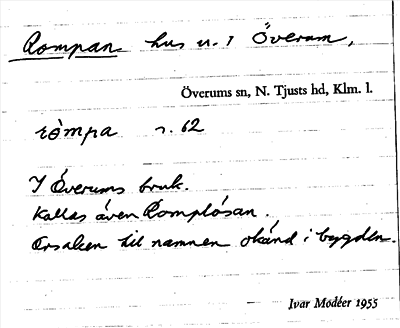 Rompan. hus n. 1 Överum,
Överums sn, N. Tjusts hd, Klm. l.
ròmpa s. 62
I Överums bruk.
Kallas även Romplösan.
Orsaken till namnen okänd i bygden.
Ivar Modéer 1955